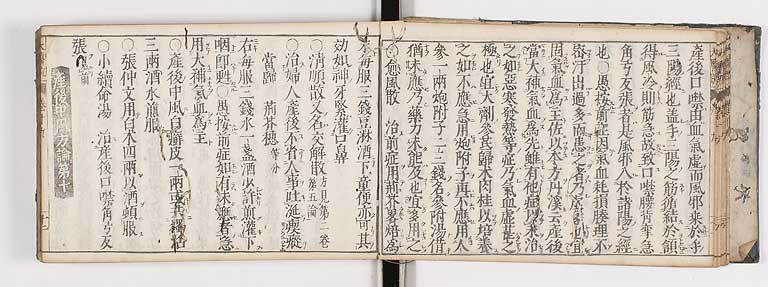 產後口噤由血氣虛而風邪乘於手
三陽經也蓋手三陽之筋循結於頷
得風冷則筋急故致口噤腰背攣急
角弓反張者是風邪入於諸陽之經
也○愚按前症因氣血耗損腠理不
密汗出過多而患之者乃虛象也宜
固氣血為主佐以本方丹溪云產後
當大補氣血為先雖有他症以末治
之如惡寒發熱等症乃氣血虛甚之
極也宜大劑參芪歸朮肉桂以培養
之如不應急用炮附子再不應用人
參一兩炮附子二三錢名參附湯倘
猶未應乃藥力未能及也宜多用之
○愈風散 治前症用荊芥畧焙為
末每服三錢豆淋酒下童便亦可其
効如神牙緊灌口鼻
○清魂散又名交解散方見第三卷第五論
○治婦人產後不省人事吐涎瘈瘲
當歸 荊芥穗等分
右每服三錢水一盞酒少許煎灌下
咽即甦○愚按前症如有未應者急
用大補氣血為主
○產後中風白蘚皮一兩或具獨活
三兩酒水煎服
○張仲文用白朮四兩以酒煎服
○小續命湯 治產後口噤角弓反
張
產後中風方論第十